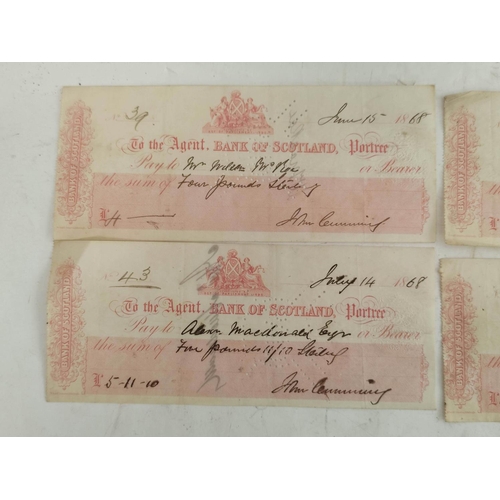 39
June 15 1868
To the Agent, BANK OF SCOTLAND, Portree
Pay to Mr or Bearer
the sum of Four Pounds Sterling
£4
John Cumming
BANK OF SCOTLAND
43
July 14 1868
To the Agent, BANK OF SCOTLAND, Portree
Pay to Macdonald Esqr or Bearer
the sum of Five Pounds 11/10 Sterling
£5-11-10
John Cumming
BANK OF SCOTLAND